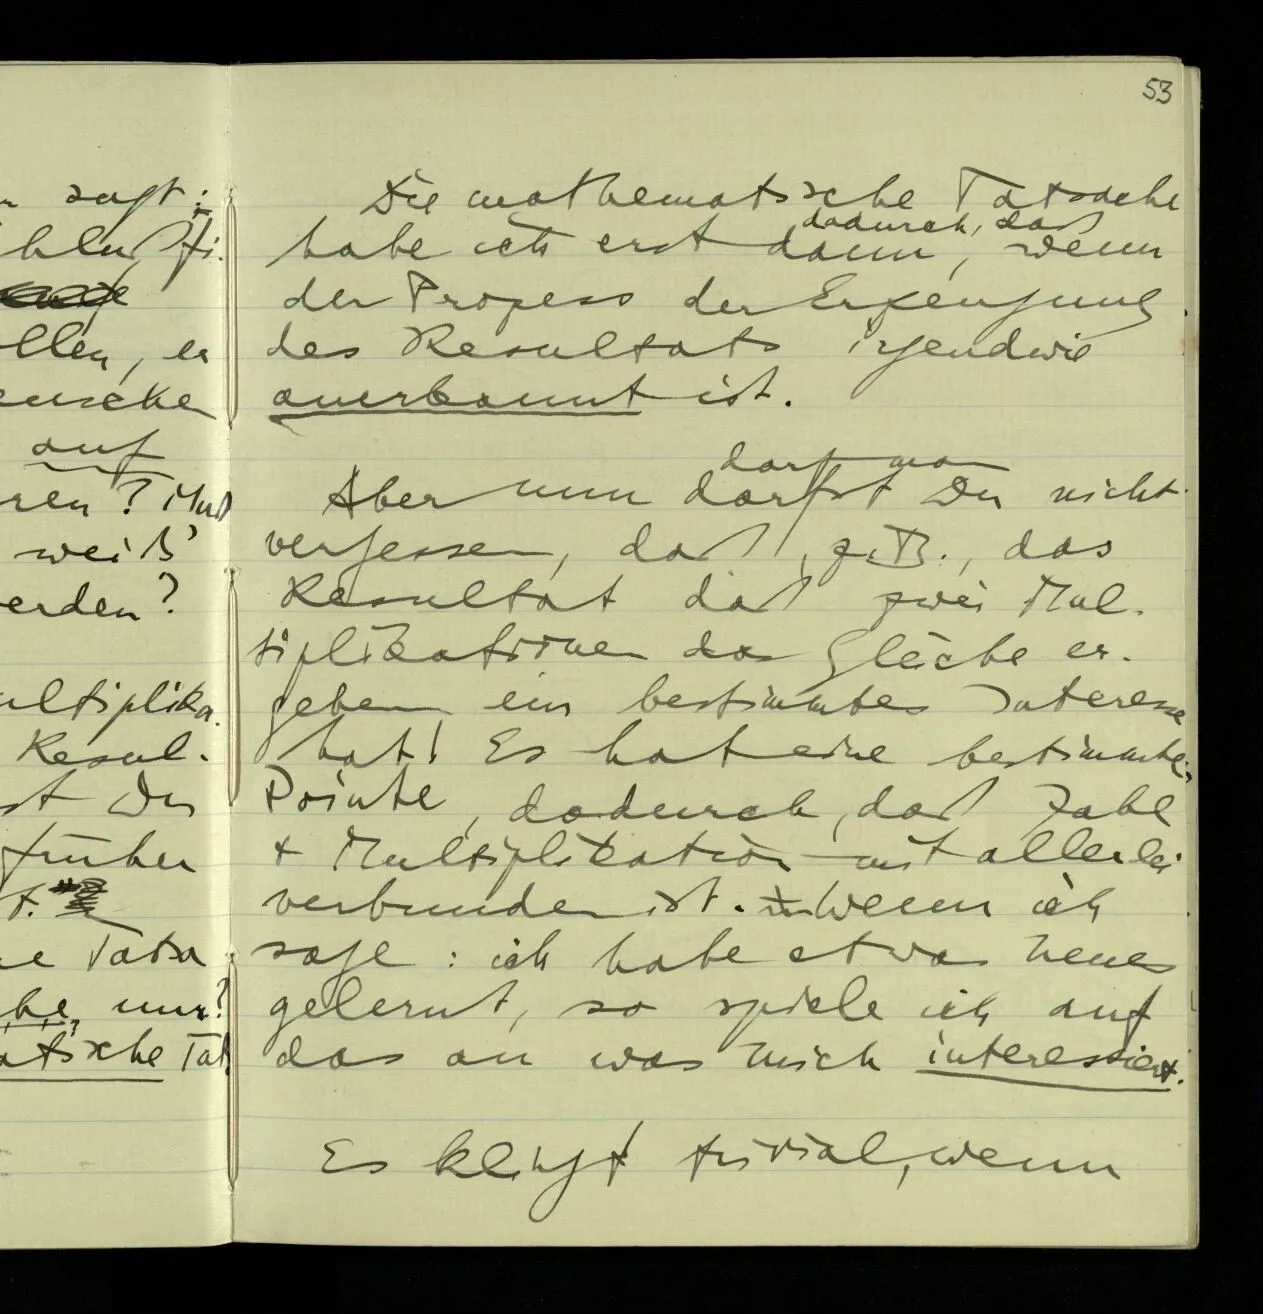 53
sagt:
ollen, er
auf
ren? Und
weiß
erden?
ultiplika-
Resul-
st Du
früher
t.
e Tatsa
be, nur?
atische Tat
Die mathematische Tatsache
dadurch, daß
habe ich erst dann, wenn
der Prozess der Erzeugung
des Resultats irgendwie
anerkannt ist.
darf man
Aber nun darfst Du nicht
vergessen, daß, z.B., das
Resultat daß zwei Mul-
tiplikationen das Gleiche er-
geben ein bestimmtes Interesse
hat! Es hat eine bestimmte
Pointe, dadurch, daß Zahl
+ Multiplikation mit allerlei
verbunden ist. Wenn ich
sage: ich habe etwas Neues
gelernt, so spiele ich auf
das an was mich interessiert.
Es klingt trivial, wenn